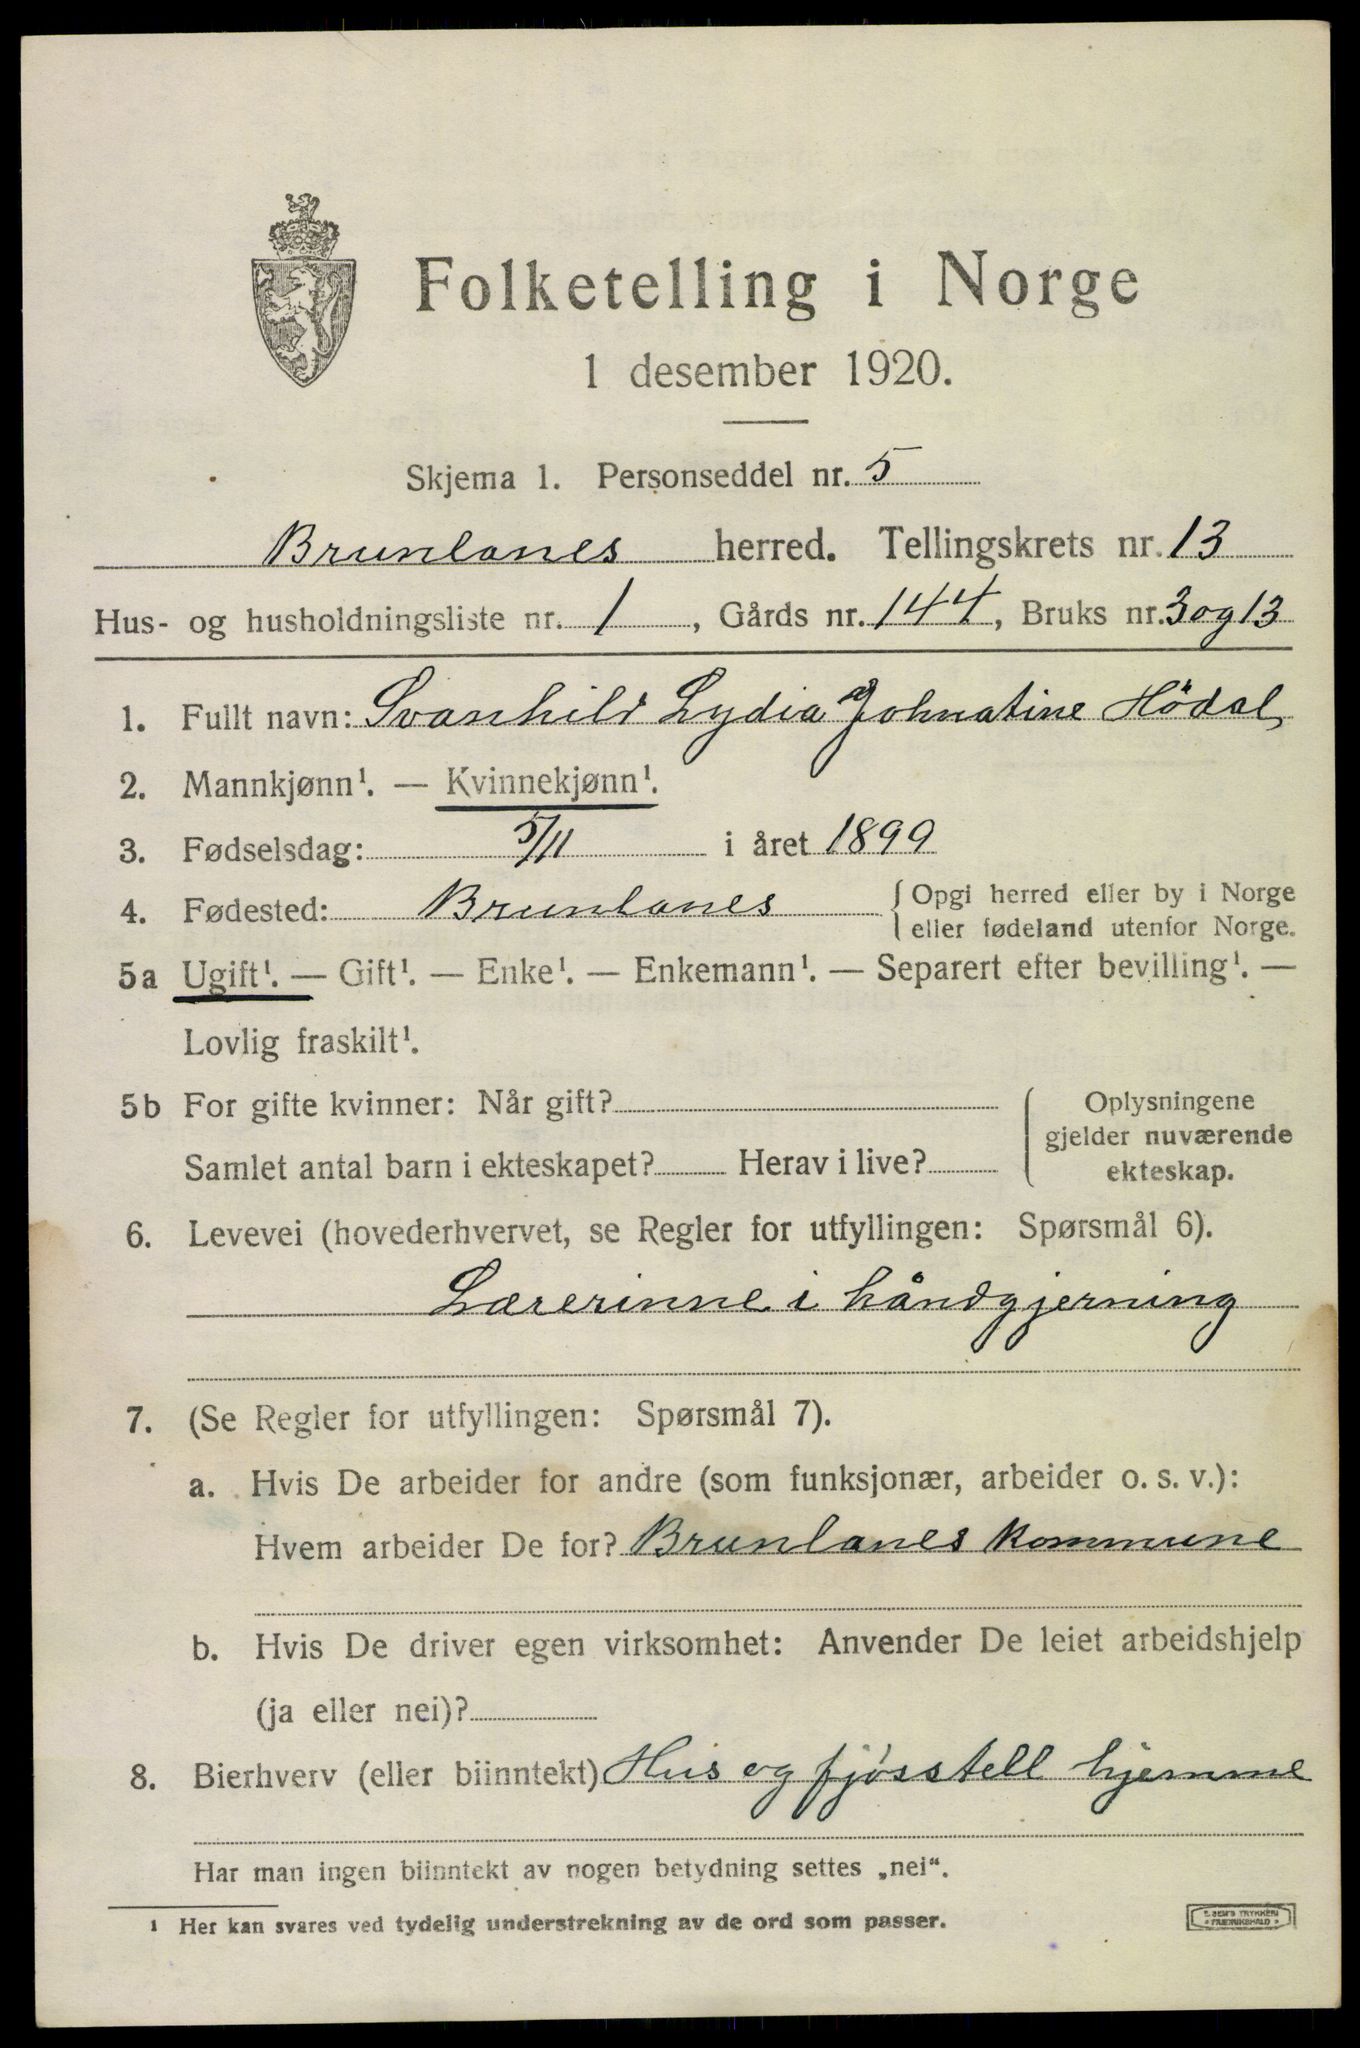 Folketelling i Norge
1 desember 1920.
Skjema 1. Personseddel nr. 5
Brunlanes herred. Tellingskrets nr. 13
Hus- og husholdningsliste nr. 1, Gårds nr. 144, Bruks nr. 3 og 13
1. Fullt navn: Svanhild Lydia Johnatine Hödal
2. Mannkjønn¹. — Kvinnekjønn¹.
3. Fødselsdag: 5/11 i året 1899
4. Fødested: Brunlanes { Opgi herred eller by i Norge
eller fødeland utenfor Norge.
5a Ugift¹. — Gift¹. — Enke¹. — Enkemann¹. — Separert efter bevilling¹. —
Lovlig fraskilt¹.
5b For gifte kvinner: Når gift? Oplysningene
gjelder nuværende
Samlet antal barn i ekteskapet? Herav i live? ekteskap.
6. Levevei (hovederhvervet, se Regler for utfyllingen: Spørsmål 6).
Lærerinne i håndgjerning
7. (Se Regler for utfyllingen: Spørsmål 7).
a. Hvis De arbeider for andre (som funksjonær, arbeider o. s. v.):
Hvem arbeider De for? Brunlanes kommune
b. Hvis De driver egen virksomhet: Anvender De leiet arbeidshjelp
(ja eller nei)?
8. Bierhverv (eller biinntekt) Hus og fjósstell hjemme
Har man ingen biinntekt av nogen betydning settes „nei“.
¹ Her kan svares ved tydelig understrekning av de ord som passer.
E. SEM'S TRYKKERI
FREDRIKSHALD